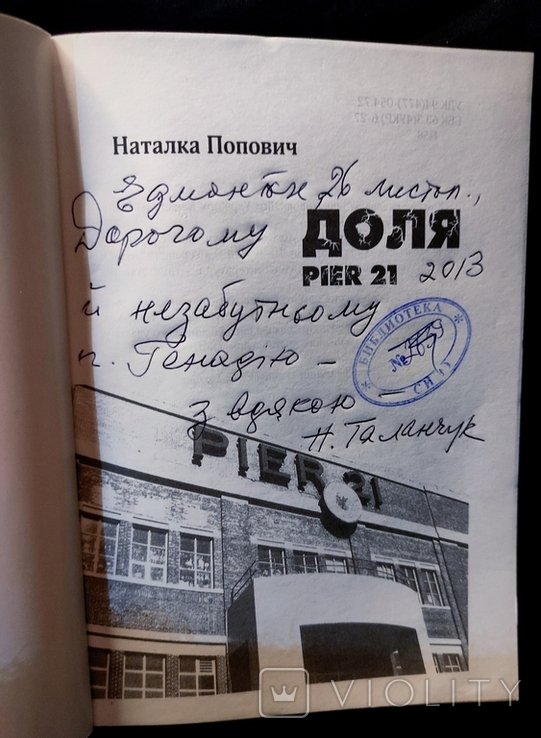 Наталка Попович
Едмонтон 26 листоп.,
Дорогому
ДОЛЯ
PIER 21
2013
й незабутньому
п. Генадію –
з вдякою
Н. Таланчук
БИБЛИОТЕКА
№
PIER 21
VIOLITY